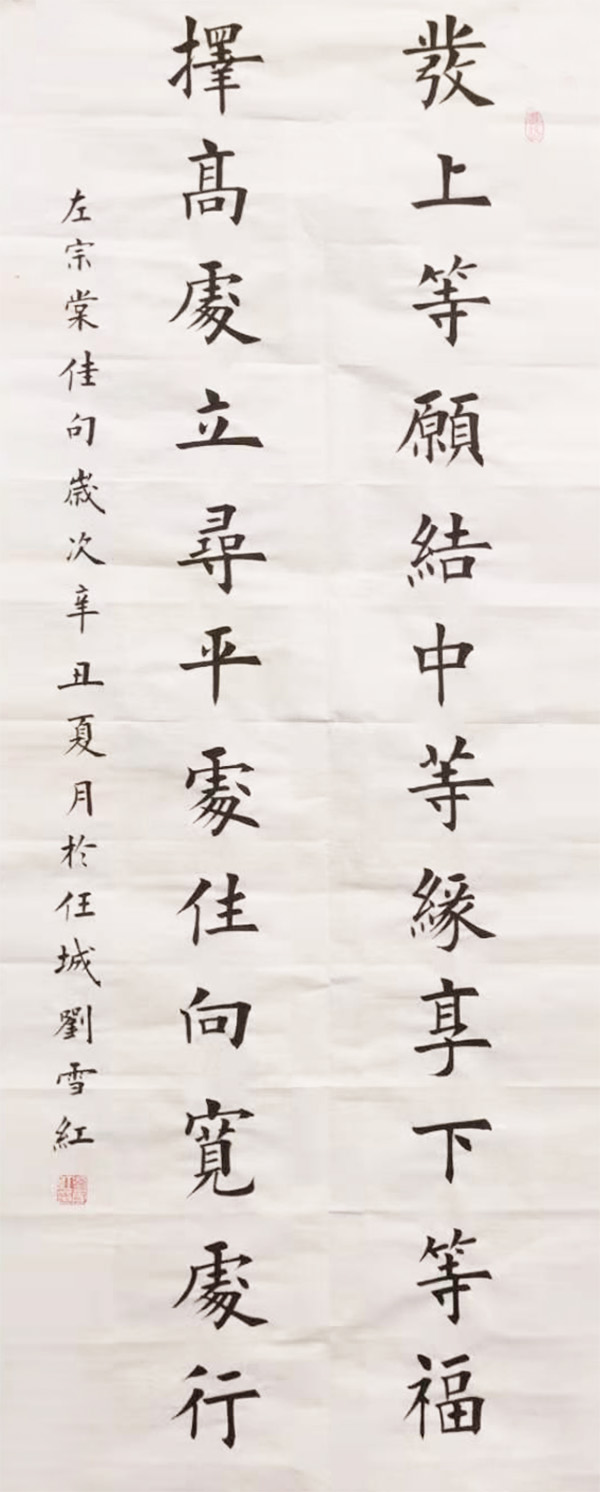 發上等願結中等緣享下等福
擇高處立尋平處住向寬處行
左宗棠佳句歲次辛丑夏月於任城劉雪紅